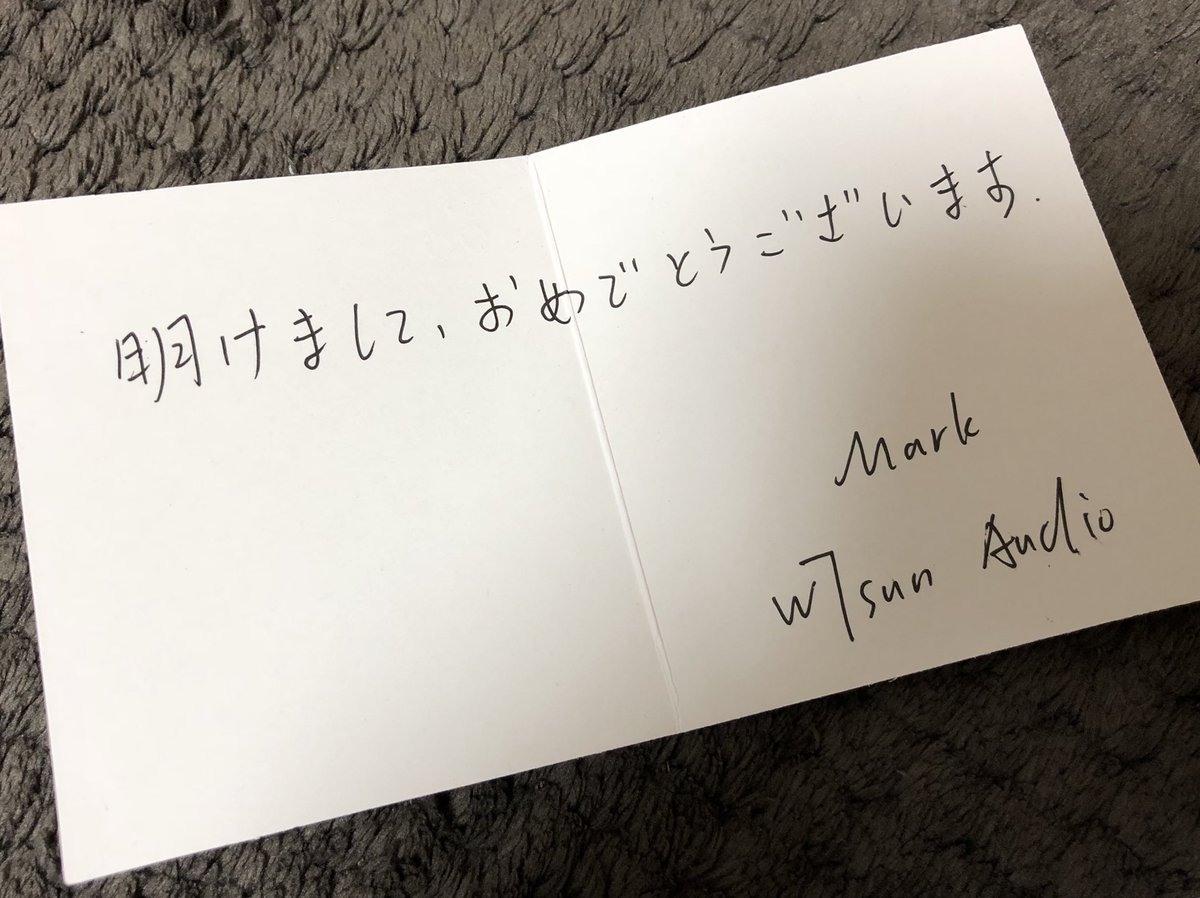 明けまして、おめでとうございます.
Mark
W7sun Audio